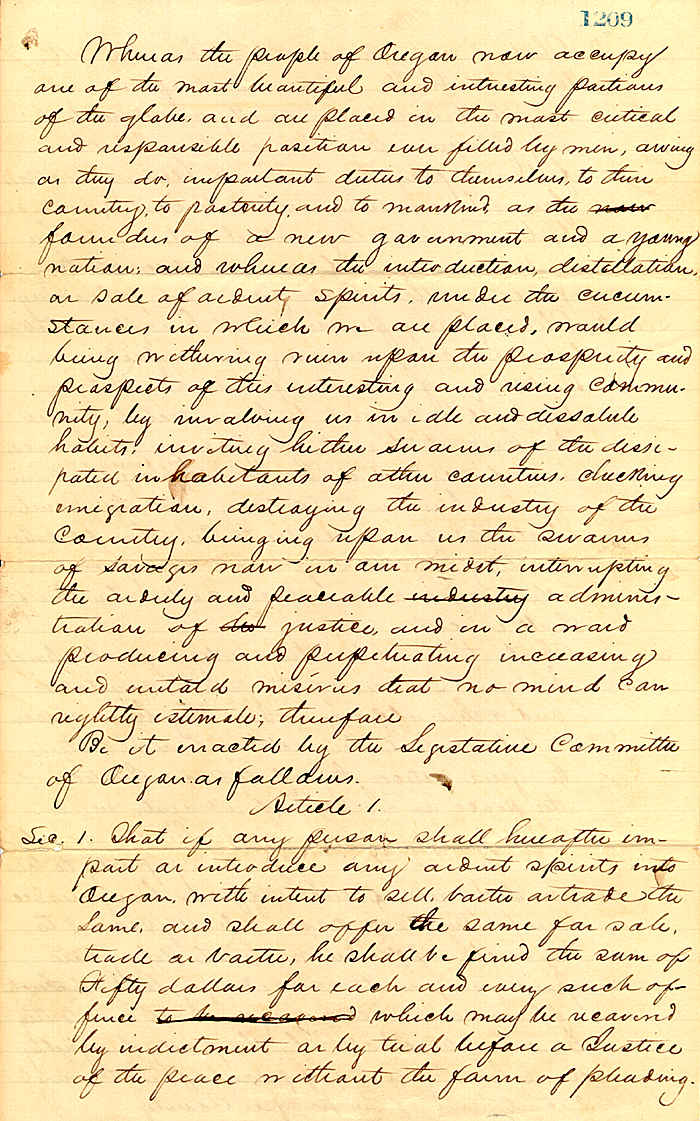 1209
Whereas the people of Oregon now occupy
one of the most beautiful and interesting portions
of the globe, and are placed in the most critical
and responsible position ever filled by men, owing
as they do, important duties to themselves, to their
country, to posterity, and to mankind, as the now
founders of a new government and a young
nation: and whereas the introduction, distillation,
or sale of ardent spirits, under the circum-
stances in which we are placed, would
bring withering ruin upon the prosperity and
prospects of this interesting and rising commu-
nity, by involving us in idle and dissolute
habits: inviting hither swarms of the dissi-
pated inhabitants of other countries, checking
emigration, destroying the industry of the
country, bringing upon us the swarms
of savages now in our midst, interrupting
the orderly and peaceable industry adminis-
tration of justice, and in a word
producing and perpetuating increasing
and untold miseries that no mind can
rightly estimate; therefore
Be it enacted by the Legislative Committee
of Oregon as follows.
Article 1.
Sec. 1. That if any person shall hereafter im-
port or introduce any ardent spirits into
Oregon, with intent to sell, barter or trade the
same, and shall offer the same for sale,
trade or barter, he shall be fined the sum of
Fifty dollars for each and every such of-
fence to be recovered which may be recovered
by indictment or by trial before a Justice
of the peace without the form of pleading.